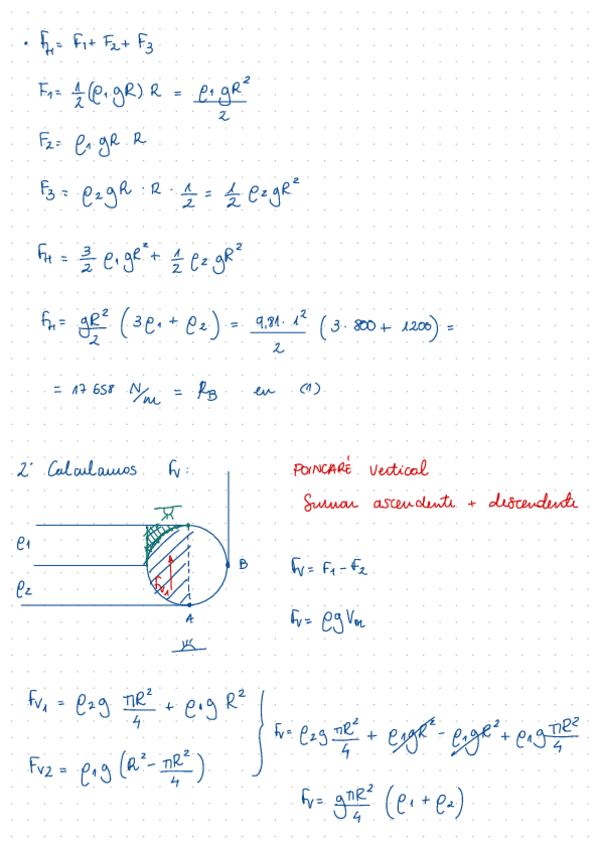 · F_H = F₁ + F₂ + F₃
F₁ = 1/2 (ρ₁ gR) R = ρ₁ gR²/2
F₂ = ρ₁ gR R
F₃ = ρ₂ gR · R · 1/2 = 1/2 ρ₂ gR²
F_H = 3/2 ρ₁ gR² + 1/2 ρ₂ gR²
F_H = gR²/2 (3ρ₁ + ρ₂) = 9,81 · 1²/2 (3 · 800 + 1200) =
= 17 658 N/m = R_B en (1)
2º Calculamos F_V:
POINCARÉ Vertical
Sumar ascendente + descendente
ρ₁
ρ₂
F_V₁
A
B
F_V = F₁ - F₂
F_V = ρg V_m
F_V₁ = ρ₂g πR²/4 + ρ₁g R²
F_V2 = ρ₁g (R² - πR²/4)
F_V = ρ₂g πR²/4 + ρ₁gR² - ρ₁gR² + ρ₁g πR²/4
F_V = gπR²/4 (ρ₁ + ρ₂)